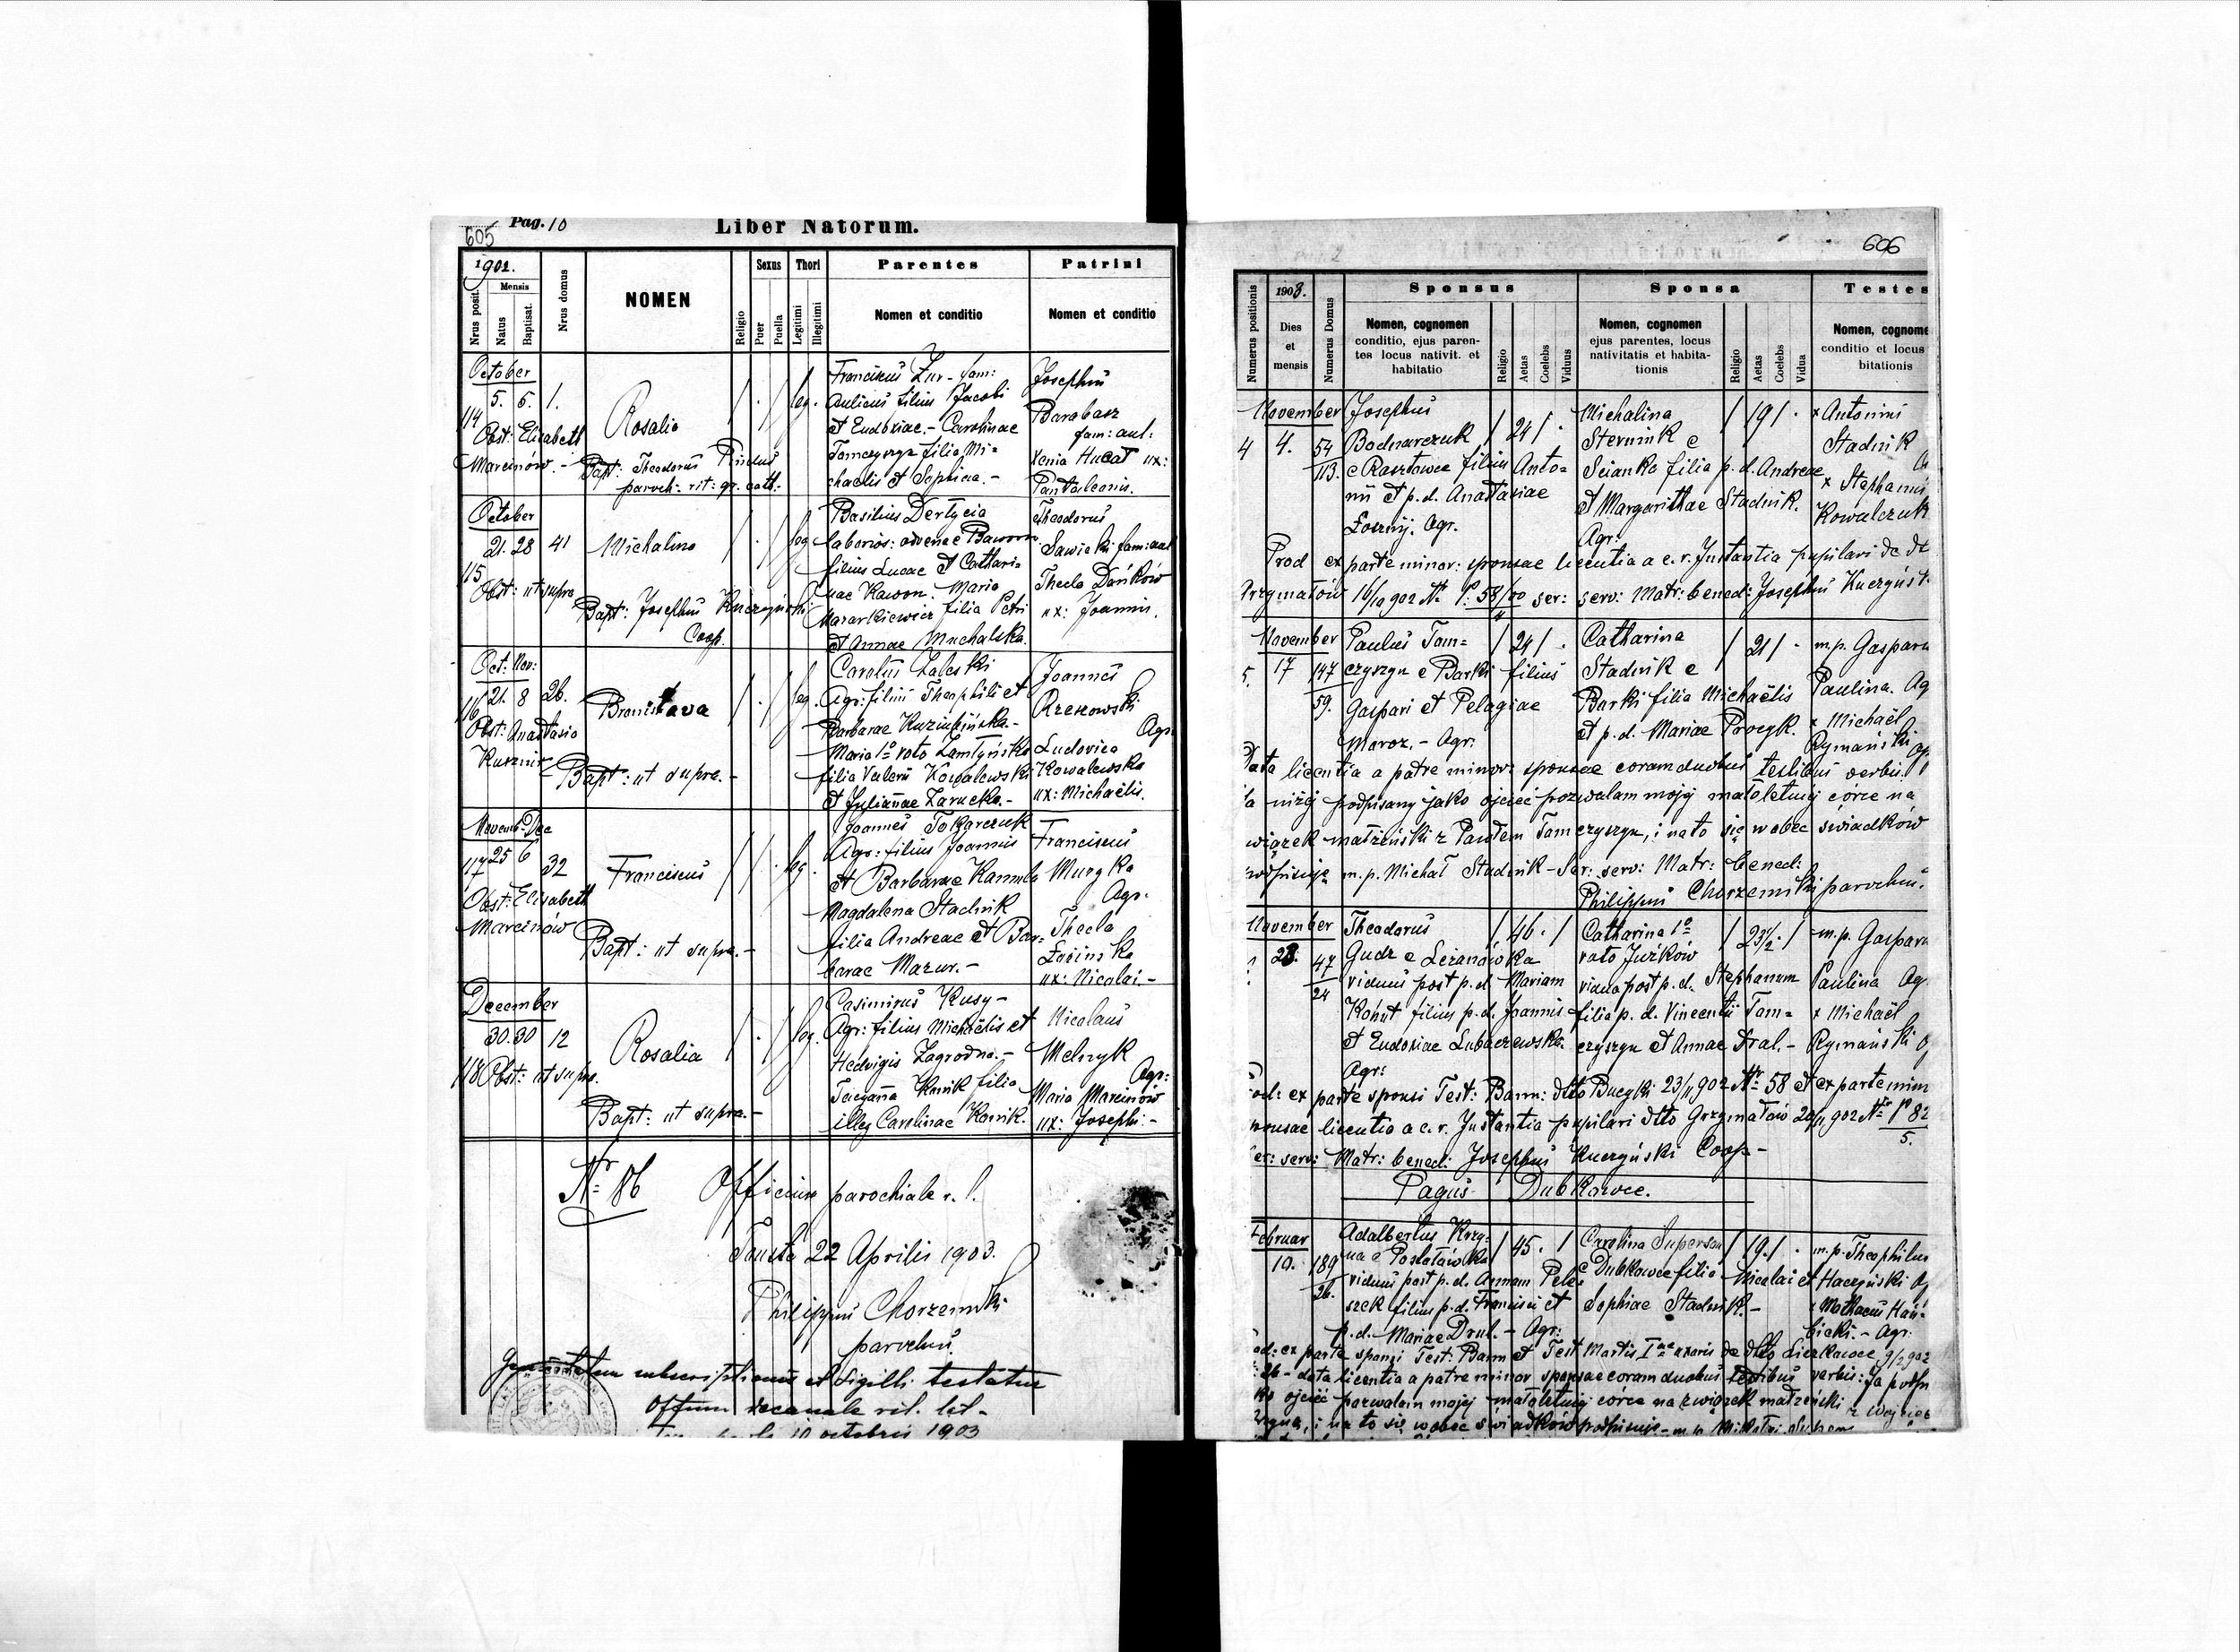 605
Pag. 10
Liber Natorum.
1902.
Nrus posit.
Mensis
Natus
Baptisat.
Nrus domus
NOMEN
Religio
Sexus
Puer
Puella
Thori
Legitimi
Illegitimi
Parentes
Nomen et conditio
Patrini
Nomen et conditio
October
5. 6. 1.
114
Obst: Elisabeth
Marcinów.-
Rosalia
leg.
Bapt: Theodorus
paroch: rit: gr. cath:
Franciscus Żur - fam:
aulicus filius Jacobi
et Eudoxiae.- Carolinae
Tomczyszyn filia Mi-
chaelis et Sophiae.-
Josephus
Barabasz
fam: aul:
Xenia Hucał ux:
Pantaleonis.
October
21. 28 41
115
Obst: ut supra
Michalina
leg
Bapt: Josephus Kuczyński
Coop.
Basilius Dertycia
laborios: advenae
filius Lucae et Cathari-
nae Kawon. Maria
Mazarkiewicz filia Petri
et Annae Muchalska.
Theodorus
Sawicki fam: aul
Thecla Dańków
ux: Joannis.
Oct: Nov:
21. 8 26.
116
Obst: Anastasia
Kusznir
Bronisława
leg.
Bapt: ut supra.-
Carolus Zaleski
Agr: filius Theophili et
Barbarae
Maria 1o voto
filia Valerii Kowalewski
et Julianae Zarucka.-
Joannes
Rzeszowski
Agr.
Ludovica
Kowalewska
ux: Michaëlis.
Novemb. Dec
25 6 32
117
Obst: Elisabeth
Marcinów
Franciscus
leg.
Bapt: ut supra.-
Joannes Tokarczuk
Agr: filius Joannis
et Barbarae Kamula
Magdalena Stadnik
filia Andreae et Bar-
barae Mazur.-
Franciscus
Muzyka
Agr.
Thecla
ux: Nicolai.-
December
30. 30 12
118 Obst: ut supra.
Rosalia
leg.
Bapt: ut supra.-
Casimirus Kusy-
Agr: filius Michaëlis et
Hedvigis Zagrodna.-
Tacyanna Konik filia
illeg Carolinae Konik.
Nicolaus
Melnyk
Agr:
Maria Marcinów
ux: Josephi.-
Nr 86 Officium parochiale r. l.
Touste 22 Aprilis 1903.
Philippus Chorzemski
parochus.
subscriptionis et Sigilli testatur
Offium decanale rit. lat.
10 octobris 1903
606
Numerus positionis
1903.
Dies
et
mensis
Numerus Domus
Sponsus
Nomen, cognomen
conditio, ejus paren-
tes locus nativit. et
habitatio
Religio
Aetas
Coelebs
Viduus
Sponsa
Nomen, cognomen
ejus parentes, locus
nativitatis et habita-
tionis
Religio
Aetas
Coelebs
Vidua
Testes
Nomen, cognome
conditio et locus
bitationis
November
4 4. 54
113.
Josephus
Bodnarczuk
e Rasztowce filius Anto-
nii et p. d. Anastasiae
Łoznij. Agr.
24
Michalina
Sternink e
Scianka filia p. d. Andreae
et Margarithae Stadnik.
Agr.
19
x Antonius
Stadnik
x Stephanus
Kowalczuk
Prod ex parte minor: sponsae licentia a c. r. Instantia pupilari de dt
Grzymałów 16/10 902 Nr P. 58/00 ser: serv: Matr: bened: Josephus Kuczyńs
November
5. 17 147
59.
Paulus Tom-
czyszyn e Parki filius
Gaspari et Pelagiae
Maroz.- Agr:
24
Catharina
Stadnik e
Parki filia Michaëlis
et p. d. Mariae Procyk.
21
m.p. Gasparu
Paulina. Ag
x Michaël
Rymański
Data licentia a patre minor: sponsae coram duobus testibus verbis:
Ja niżej podpisany jako ojciec pozwalam mojej małoletniej córce na
związek małżeński z Pawłem Tomczyszyn, i na to się wobec świadków
podpisuję m.p. Michał Stadnik - Ser: serv: Matr: bened:
Philippus Chorzemski parochus.
November
28. 47
24
Theodorus
Gudz e Leżanówka
viduus post p. d. Mariam
Kohut filius p. d. Joannis
et Eudoxiae Lubaczewska.
Agr:
46.
Catharina 1o
voto Juźków
vidua post p. d. Stephanum
filia p. d. Vincentii Tom-
czyszyn et Annae Fral.-
23 1/2
m.p. Gasparu
Paulina Ag.
x Michaël
Rymański
ex parte sponsi Test: Bann: dtto Bucyki 23/11 902 Nr 58 et ex parte min
sponsae licentia a c. r. Instantia pupilari dtto Grzymałów 20/11 902 Nr P 82
5.
Ser: serv: Matr: bened: Josephus Kuczyński Coop-
Pagus Dubkowce.
Februar
10. 189
26.
Adalbertus Krzy-
na e Postołówka
viduus post p. d. Annam Pele-
szek filius p. d. Francisci et
p. d. Mariae Drul.- Agr:
45.
Carolina Superson
e Dubkowce filia Nicolai et
Sophiae Stadnik.-
19.
m.p. Theophilus
Haczyński
x Mathaeus Hań-
bicki.- Agr.
ex parte sponsi Test: Bann et Test Mortis Inae uxoris de dtto Liczkowce 9/2 902
26- data licentia a patre minor sponsae coram duobus testibus verbis: Ja podpi
ojciec pozwalam mojej małoletniej córce na związek małżeński z Wojciec
i na to się wobec świadków podpisuję - m.p.